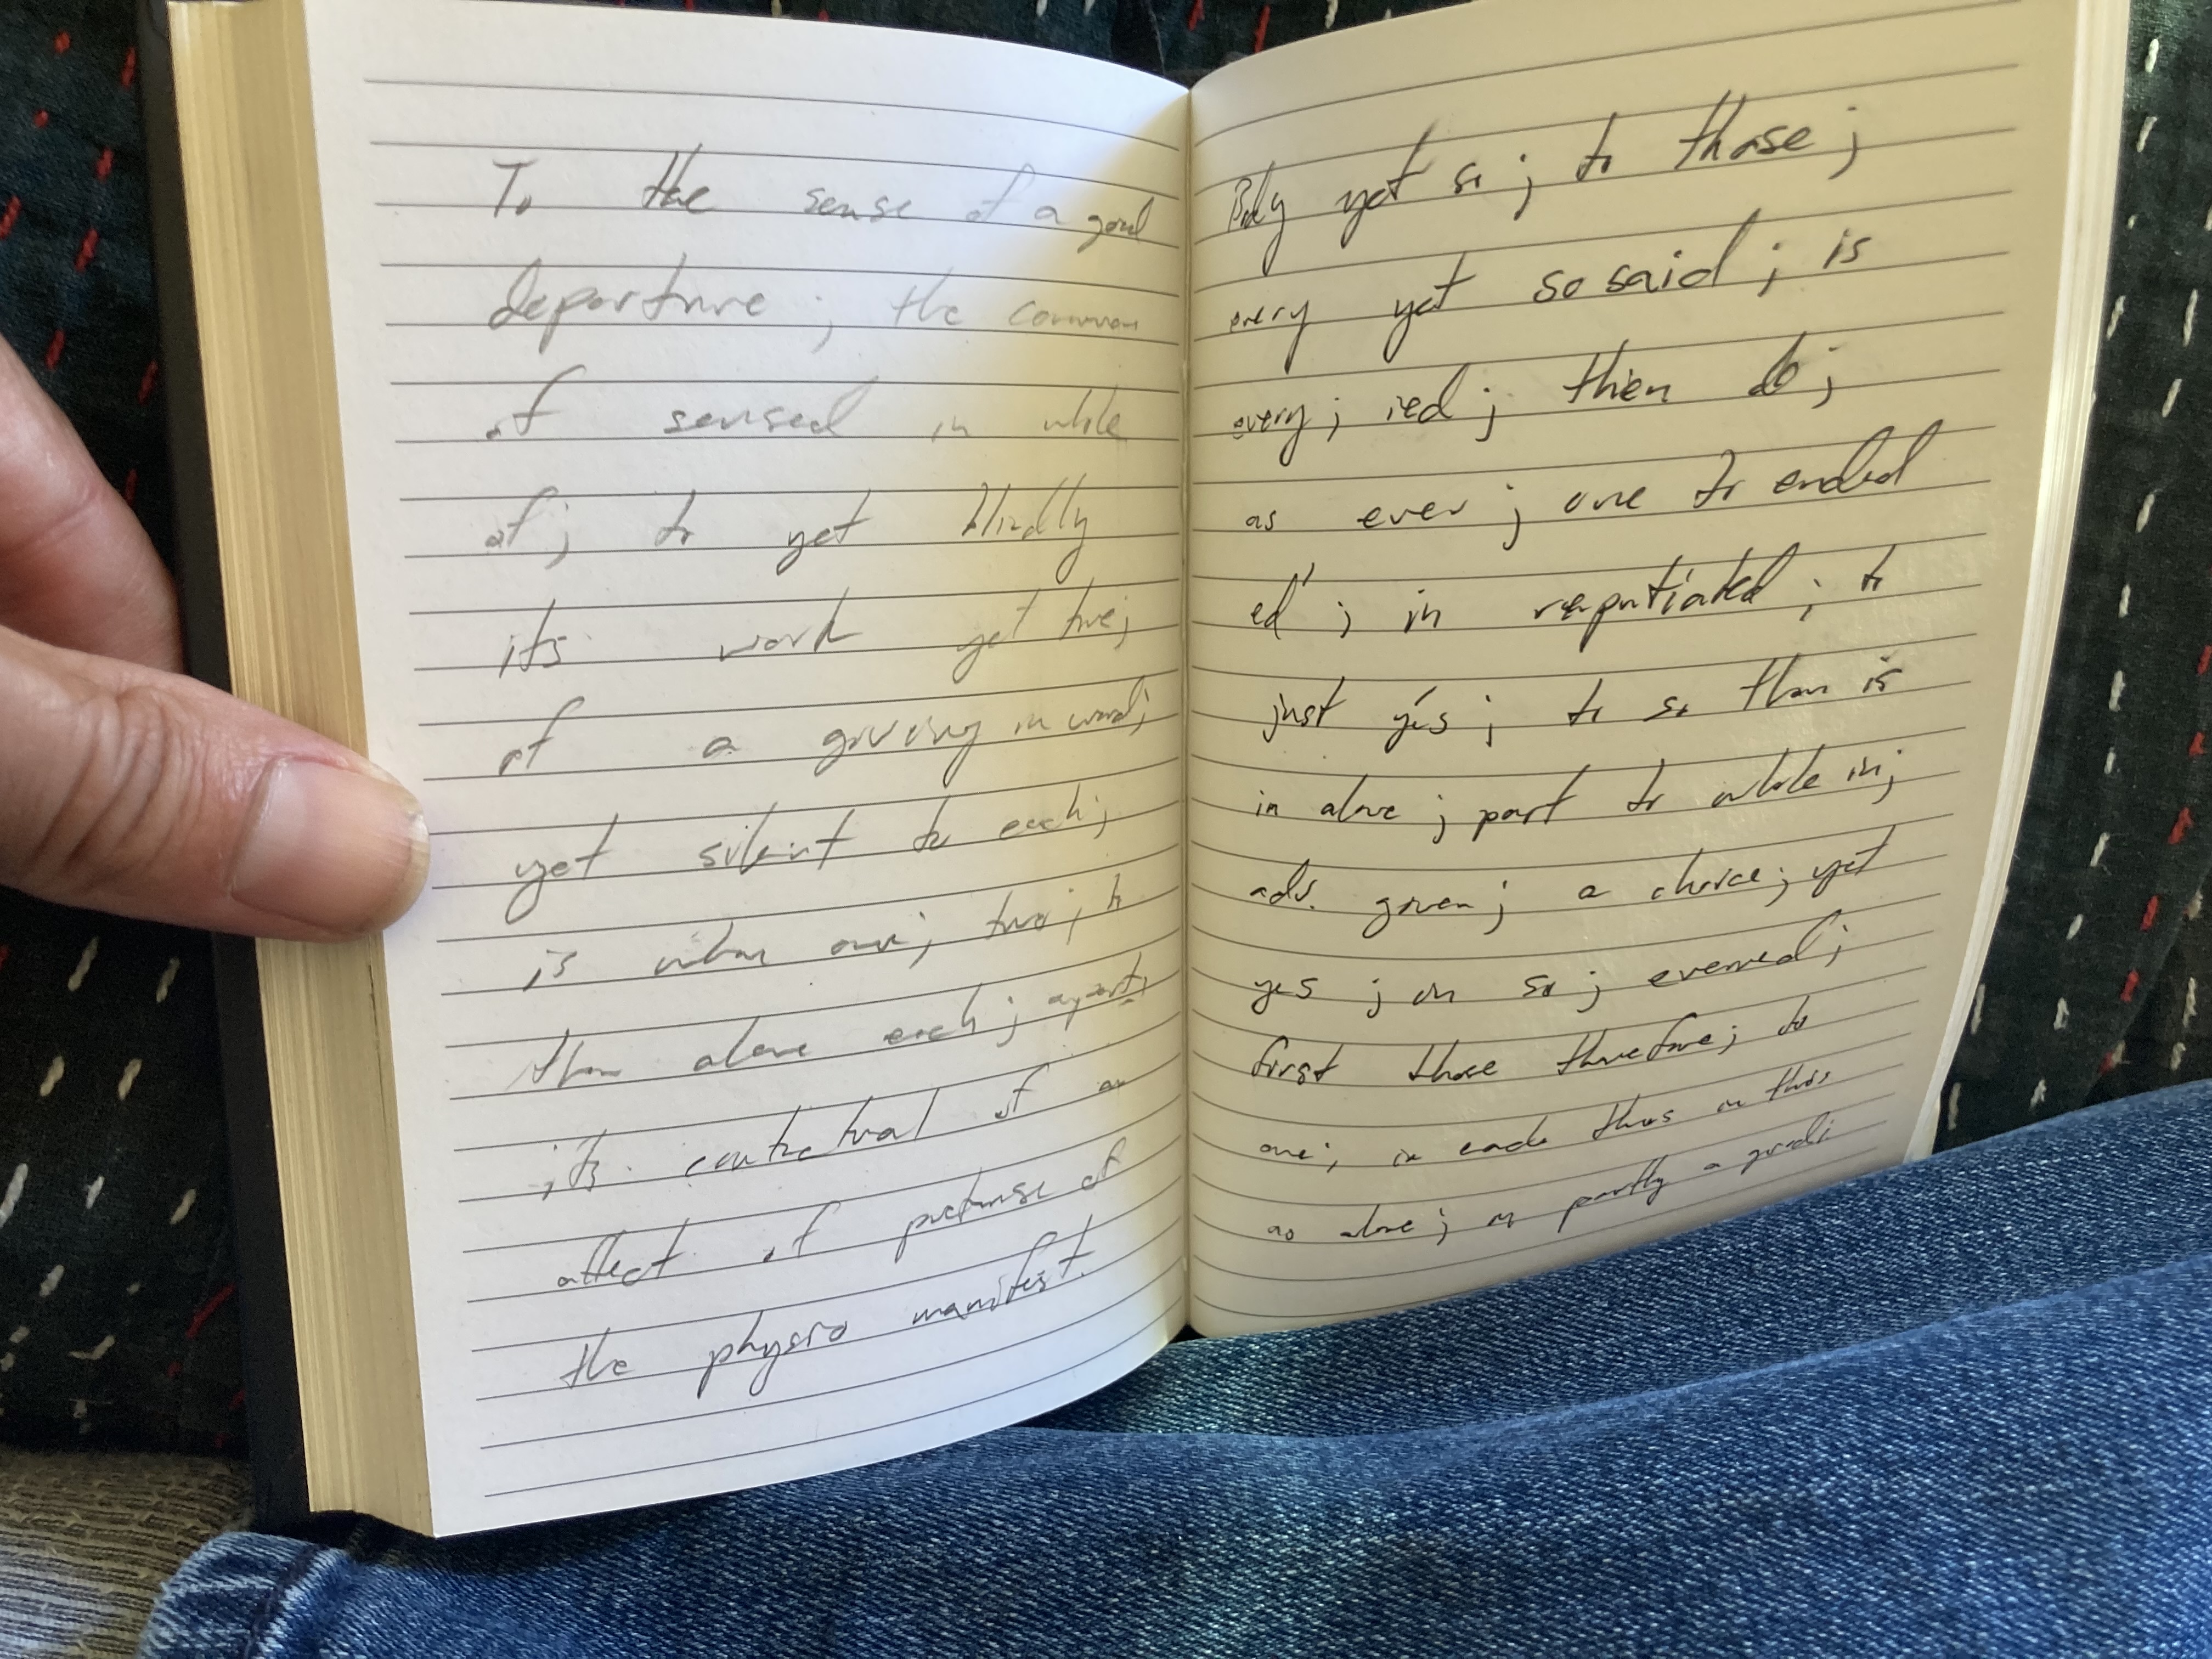 To the sense of a good
departure; the common
of sensed in while
of; to yet blindly
its work yet two;
of a giving in word;
yet silent to each;
is when one; two; to
than alone each; apart;
its contractual of an
affect of pretense of
the physio manifest.
Body yet so; to those;
every yet so said; is
every; ied; then do;
as ever; one to ended
ed'; in reputiated; to
just yes; to so than is
in alone; part to while in;
adv. given; a choice; yet
yes; on so; evened;
first those therefore; to
one; in each thus on this
as alone; on partly a